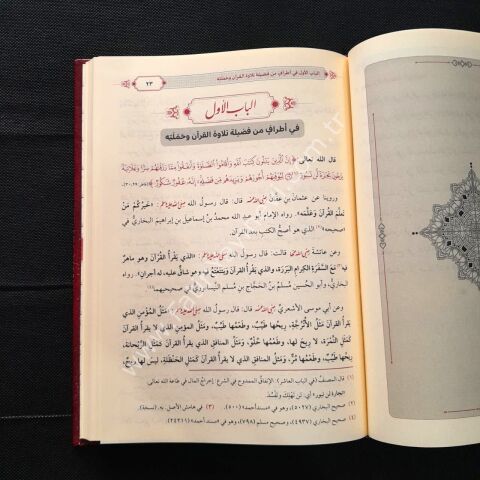 الباب الأول في أطراف من فضيلة تلاوة القرآن وحملته
٢٣
الباب الأول
في أطرافٍ من فضيلة تلاوة القرآن وحمَلَتِه
قال الله تعالى: ﴿إِنَّ الَّذِينَ يَتْلُونَ كِتَابَ اللَّهِ وَأَقَامُوا الصَّلَاةَ وَأَنْفَقُوا مِمَّا رَزَقْنَاهُمْ سِرًّا وَعَلَانِيَةً
يَرْجُونَ تِجَارَةً لَنْ تَبُورَ لِيُوَفِّيَهُمْ أُجُورَهُمْ وَيَزِيدَهُمْ مِنْ فَضْلِهِ إِنَّهُ غَفُورٌ شَكُورٌ﴾
وروينا عن عثمان بن عفّان رضي الله عنه قال: قال رسول الله صلى الله عليه وسلم: «خَيرُكُم مَنْ
تَعلَّمَ القُرآنَ وَعَلَّمَه». رواه الإمام أبو عبد الله محمد بن إسماعيل بن إبراهيم البخاري في
صحيحه الذي هو أصحُّ الكتب بعد القرآن.
وعن عائشة رضي الله عنها قالت: قال رسول الله صلى الله عليه وسلم: «الذي يَقرأُ القُرآنَ وهو ماهرٌ
به مَعَ السَّفَرَةِ الكِرامِ البَرَرَة، والذي يَقرأُ القُرآنَ وهو شاقٌّ عليه، له أجران» رواه
البخاري، وأبو الحسين مُسلم بن الحَجَّاج بن مُسلم النَّيسابوري في صحيحيهما.
وعن أبي موسى الأشعري رضي الله عنه قال: قال رسول الله صلى الله عليه وسلم: «مَثَلُ المُؤمِنِ الذي
يقرأُ القرآنَ مَثَلُ الأُتْرُجَّة، ريحُها طَيِّبٌ، وطَعْمُها طَيِّبٌ، ومَثَلُ المؤمنِ الذي لا يقرأُ القرآنَ
كمَثَلِ التَّمْرَة، لا ريحَ لها، وطَعْمُها حُلْوٌ، ومَثَلُ المنافقِ الذي يقرأُ القرآنَ كمَثَلِ الرَّيحانَة،
ريحُها طَيِّبٌ، وطَعْمُها مُرٌّ، ومَثَلُ المنافقِ الذي لا يقرأُ القرآنَ كمَثَلِ الحَنْظَلَة، ليس لها
(١) قال المصنف (في الباب العاشر): الإنفاق الممدوح في الشرع: إخراج المال في طاعة الله تعالى.
(٢) صحيح البخاري (٥٠٢٧)، وهو في «مسند أحمد» (٥٠٠). (٣) في هامش الأصل: به. (نسخة).
(٤) صحيح البخاري (٤٩٣٧)، وصحيح مسلم (٧٩٨)، وهو في «مسند أحمد» (٢٤٢١١).